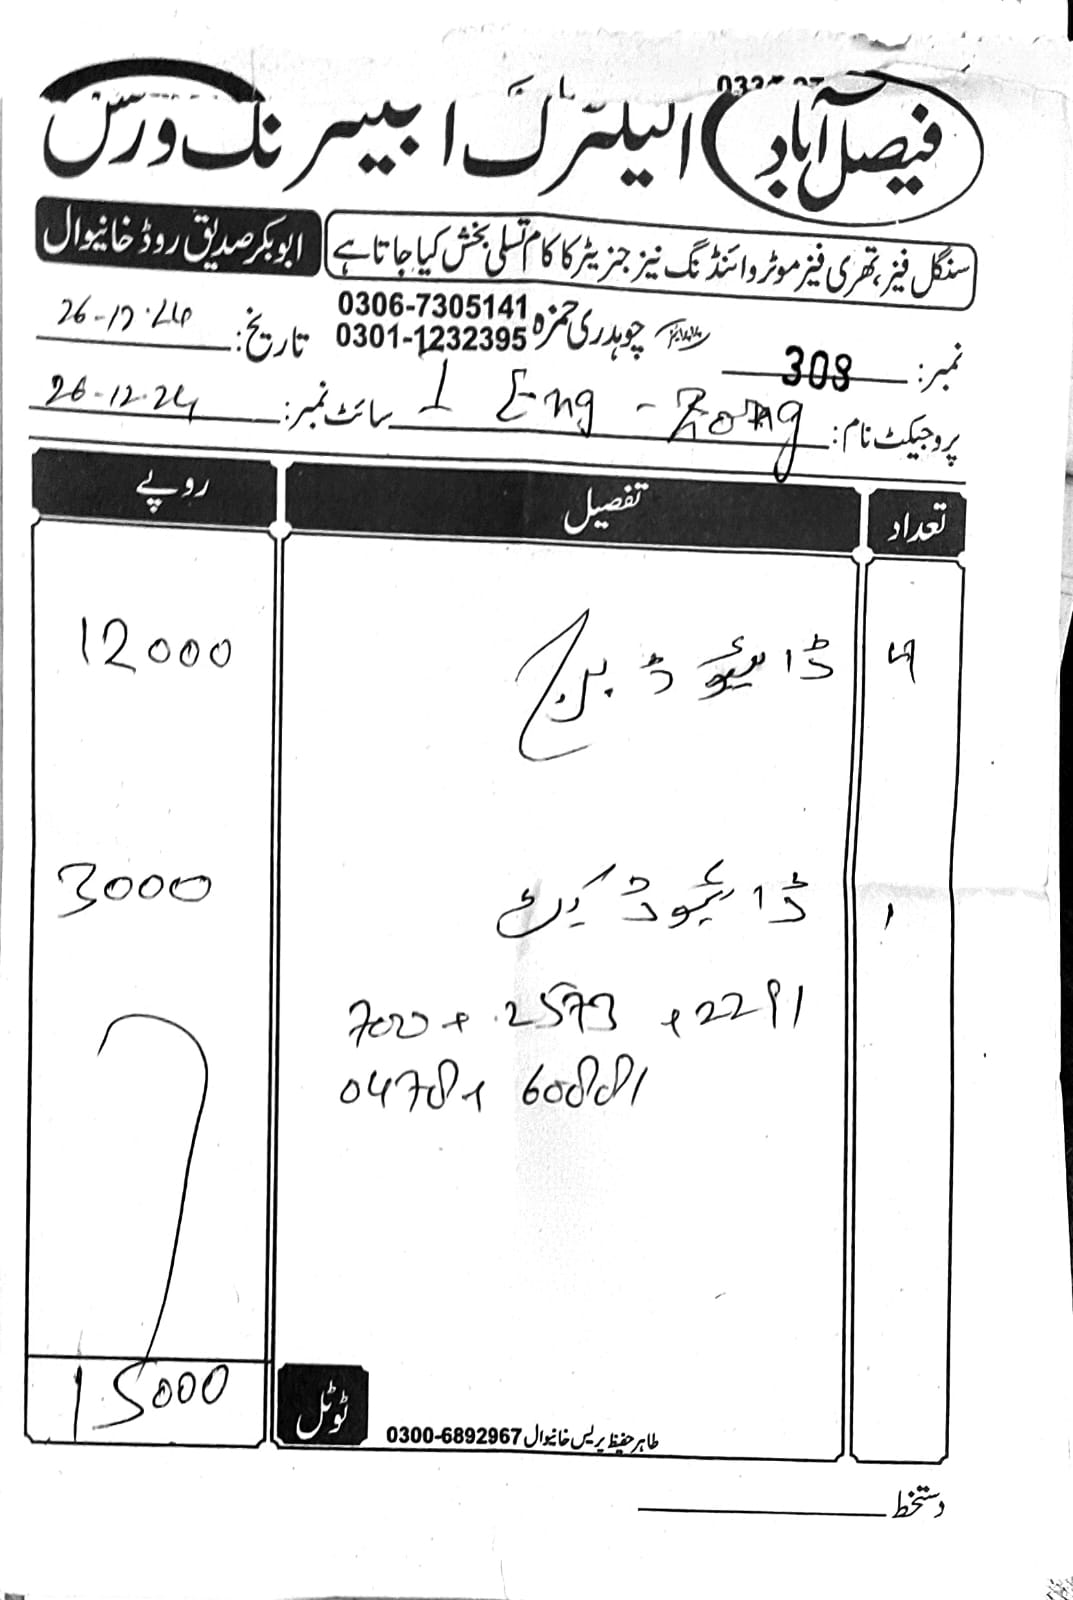 فیصل آباد الیکٹرک اینڈ ہیئرنگ ورکس
سنگل فیز، تھری فیز موٹر وائنڈنگ نیز جنریٹر کا کام تسلی بخش کیا جاتا ہے
ابوبکر صدیق روڈ خانیوال
چوہدری حمزہ 0306-7305141
0301-1232395
نمبر: 308
تاریخ: 26-12-24
پروجیکٹ نام:
سائٹ نمبر: 26-12-24
تعداد تفصیل روپے
ڈائیوڈ برج 12000
۱ ڈائیوڈ 3000
7000 + 2573 + 2291
04781 60881
ٹوٹل 15000
طاہر حفیظ پریس خانیوال 0300-6892967
دستخط